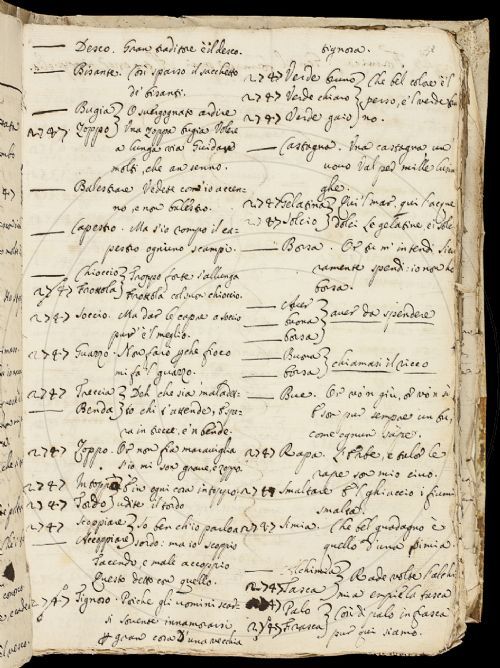 Desco. Gran traditore è il desco.
Bisante. Così sparso il sacchetto
di bisanti.
Bugia O svergognato ardire
2747 Zoppo Una zoppa bugia vole
a lunga via Guidare
molti, che an senno.
Balestrare Vedete com'io accen-
no, e non balestro.
Capestro. Ma s'io rompo il ca-
pestro ogniuno scampi.
Chioccio Troppo forte s'allunga
2747 Frottola Frottola col suon chioccio.
2747 Soccio. Ma dar le capre a soccio
pur' è il meglio.
2747 Guazzo. Non farò perche fioco
mi fà 'l guazzo.
2747 Treccia Deh che sia maladet-
Benda to chi s'attende, o spe-
ra in trecce, e 'n bende.
2747 Zoppo. Or non fia maraviglia
s'io mi son grave, e zoppo.
2747 Intoppo E in ogni cosa intoppo,
2747 Tordo udite il tordo
2747 Scoppiare Io ben ch'io parloa
Accoppiare sordo: ma io scoppio
Tacendo, e male accoppio
Questo detto con quello.
2747 Signora. Poiche gl'uomini
si sovente innamorarsi
gran cosa d'una vecchia
signora.
2747 Verde bruno Che bel colore è 'l
2747 Verde chiaro perso, e 'l verde bru
2747 Verde gaio no.
Castagna. Una castagna un
uomo Val per mille
ghe.
2747 Gelatina Qui 'l mar, qui l'acque
2747 Solcio dolci Le gelatine, e 'l
Borsa. Or tu m'intendi
ramente spendi: io non ho
borsa.
Aver
buona aver da spendere
borsa
Buona
borsa chiamasi il ricco
Bue. Or vo 'n giù, or vo 'n
E son pur sempre un bu,
come ognun sape.
2747 Rapa. L'Rabe, e tutto le
rape son mio civo.
2747 Smaltare E 'l ghiaccio i fiumi
smalta.
2747 Simia. Che bel guadagno e
quello d'una simia
Alchimia Rade volte l'alchi
2747 Tasca mia empie la tasca
Palo Così di palo in frasca
2747 Frasca pur qui siamo.